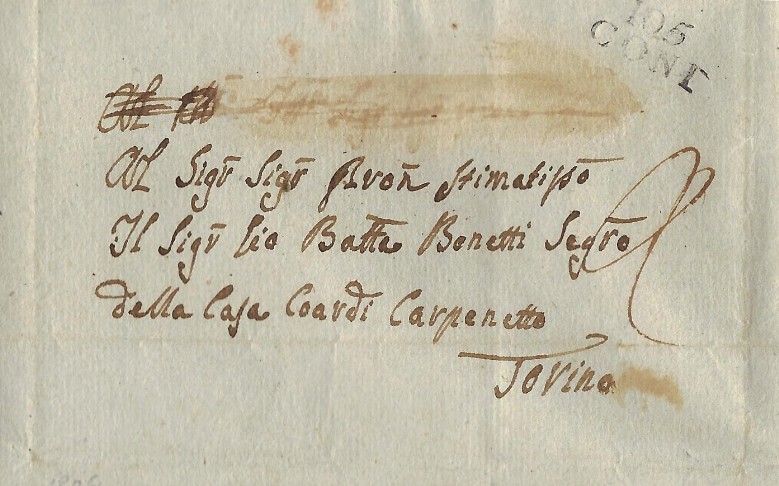 105
CONI
Al Sigr̃ Sigr̃ Pron̄ Stimatiss̃o
Il Sigr̃ Gio Batta Bonetti Segr̃o
della Casa Coardi Carpenetto
Torino